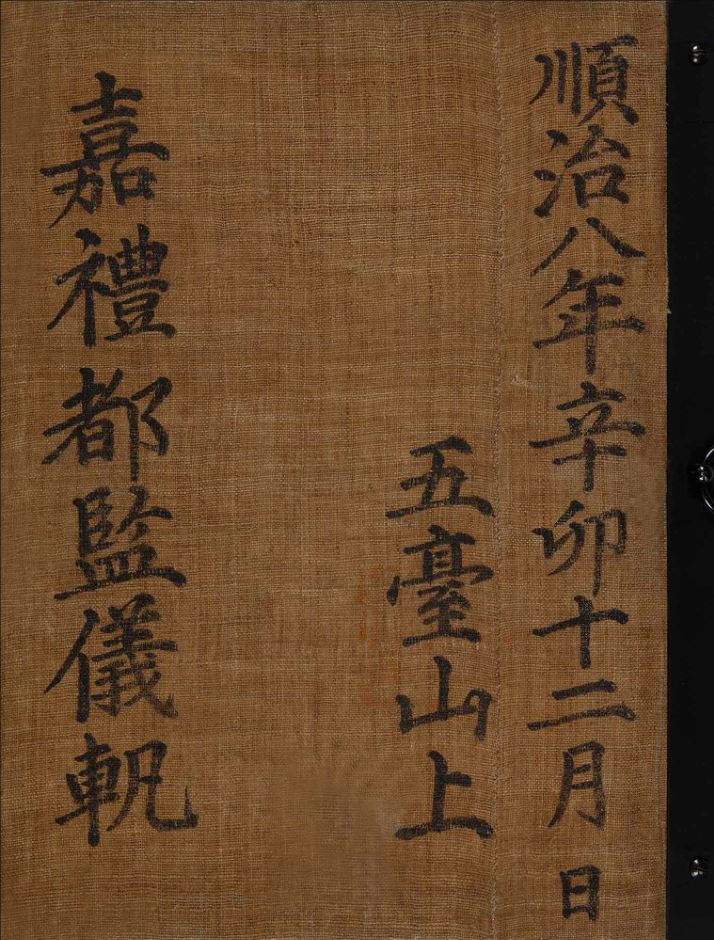 順治八年辛卯十二月日
五臺山上
嘉禮都監儀軌